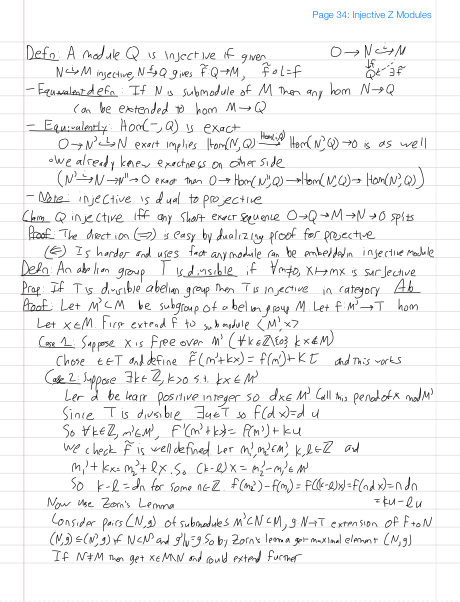 Page 34: Injective Z Modules
Defn: A module Q is injective if given 0→N↪M
N↪M injective, N→Q gives f̃: Q→M, f̃∘ι=f Q ∃f̃
- Equivalent defn: If N is submodule of M then any hom N→Q
can be extended to hom M→Q
- Equivalently: Hom(-,Q) is exact
0→N'→N exact implies Hom(N,Q)→Hom(N',Q)→0 is as well
◦we already knew exactness on other side
(N'→N→N''→0 exact then 0→Hom(N'',Q)→Hom(N,Q)→Hom(N',Q))
- Note: injective is dual to projective
Claim Q injective iff any short exact sequence 0→Q→M→N→0 splits
Proof: The direction (⇒) is easy by dualizing proof for projective
(⇐) Is harder and uses fact any module can be embedded in injective module
Defn: An abelian group T is divisible if ∀m≠0, x↦mx is surjective
Prop: If T is divisible abelian group then T is injective in category Ab
Proof: Let M'⊂M be subgroup of abelian group M. Let f: M'→T hom
Let x∈M. First extend f to submodule ⟨M',x⟩
Case 1: Suppose x is free over M' (∀k∈Z\{0} kx∉M')
Chose t∈T and define f̃(m'+kx) = f(m')+kt and this works
Case 2: Suppose ∃k∈Z, k>0 s.t. kx∈M'
Let d be least positive integer so dx∈M' Call this period of x mod M'
Since T is divisible ∃u∈T so f(dx)=du
So ∀k∈Z, m'∈M', f'(m'+kx)= f(m')+ku
We check f̃ is well defined Let m₁',m₂'∈M', k,l∈Z and
m₁'+kx=m₂'+lx. So (k-l)x=m₂'-m₁'∈M'
So k-l=dn for some n∈Z. f(m₂')-f(m₁')=f((k-l)x)=f(ndx)=ndu
=ku-lu
Now use Zorn's Lemma
Consider pairs (N,g) of submodules M'⊂N⊂M, g N→T extension of f to N
(N,g)≤(N',g') if N⊂N' and g'|N=g So by Zorn's lemma get maximal element (N,g)
If N≠M then get x∈M\N and could extend further